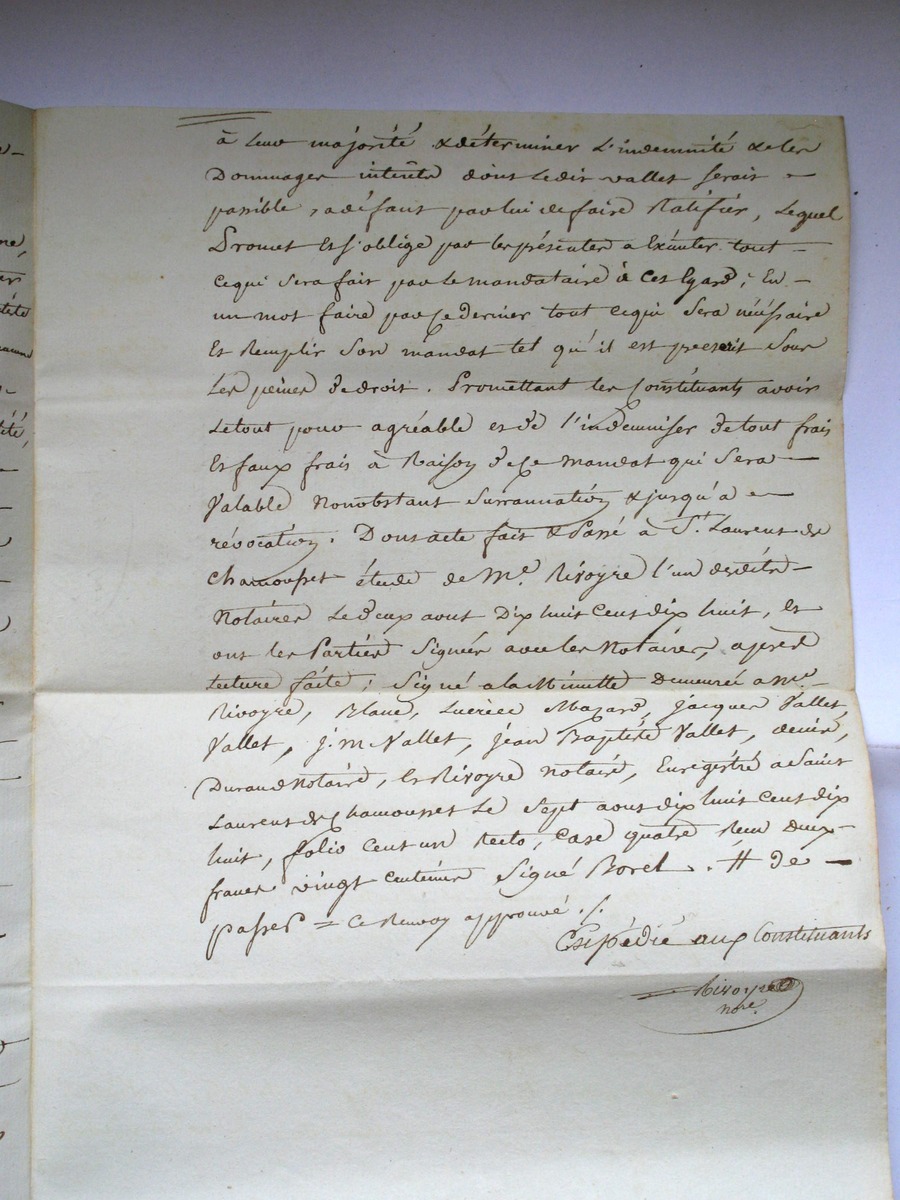 à leur majorité & déterminer L'indemnité & les
Dommages intérêts dont Ledit vallet serait
passible, a défaut par lui de faire Ratifier, Lequel
Promet Et s'oblige par les présentes a Exécuter tout
ce qui sera fait par le mandataire à cet Egard; En
un mot faire par ce dernier tout ce qui sera nécéssaire
Et Remplir son mandat tel qu'il est prescrit sous
Les peines de droit. Promettant les Constituants avoir
Le tout pour agréable et de l'indemniser de tout frais
Et faux frais à Raison de ce mandat qui sera
Valable Nonobstant surannation & jusqu'à
révocation. Dont acte fait & Passé à St. Laurent de
chamousset étude de Me. Rivoyre l'un desdits
Notaires Le deux aout Dix huit cent dix huit, Et
ont les Parties signés avec les Notaires, après
Lecture faite; signé a la Minutte Demeurée a me.
Rivoyre, Blanc, Lucrèce Mazard, jacques Vallet,
Vallet, j. m Vallet, jean Baptiste Vallet,
Durand Notaire, Et Rivoyre notaire, Enregistré a Saint
Laurent de Chamousset Le sept aout dix huit cent dix
huit, folio cent un Recto, case quatre Reçu deux
francs vingt centimes signé Borel. # de
passer = ce Renvoy approuvé ./.
Expédié aux Constituants
Rivoyre
nore.